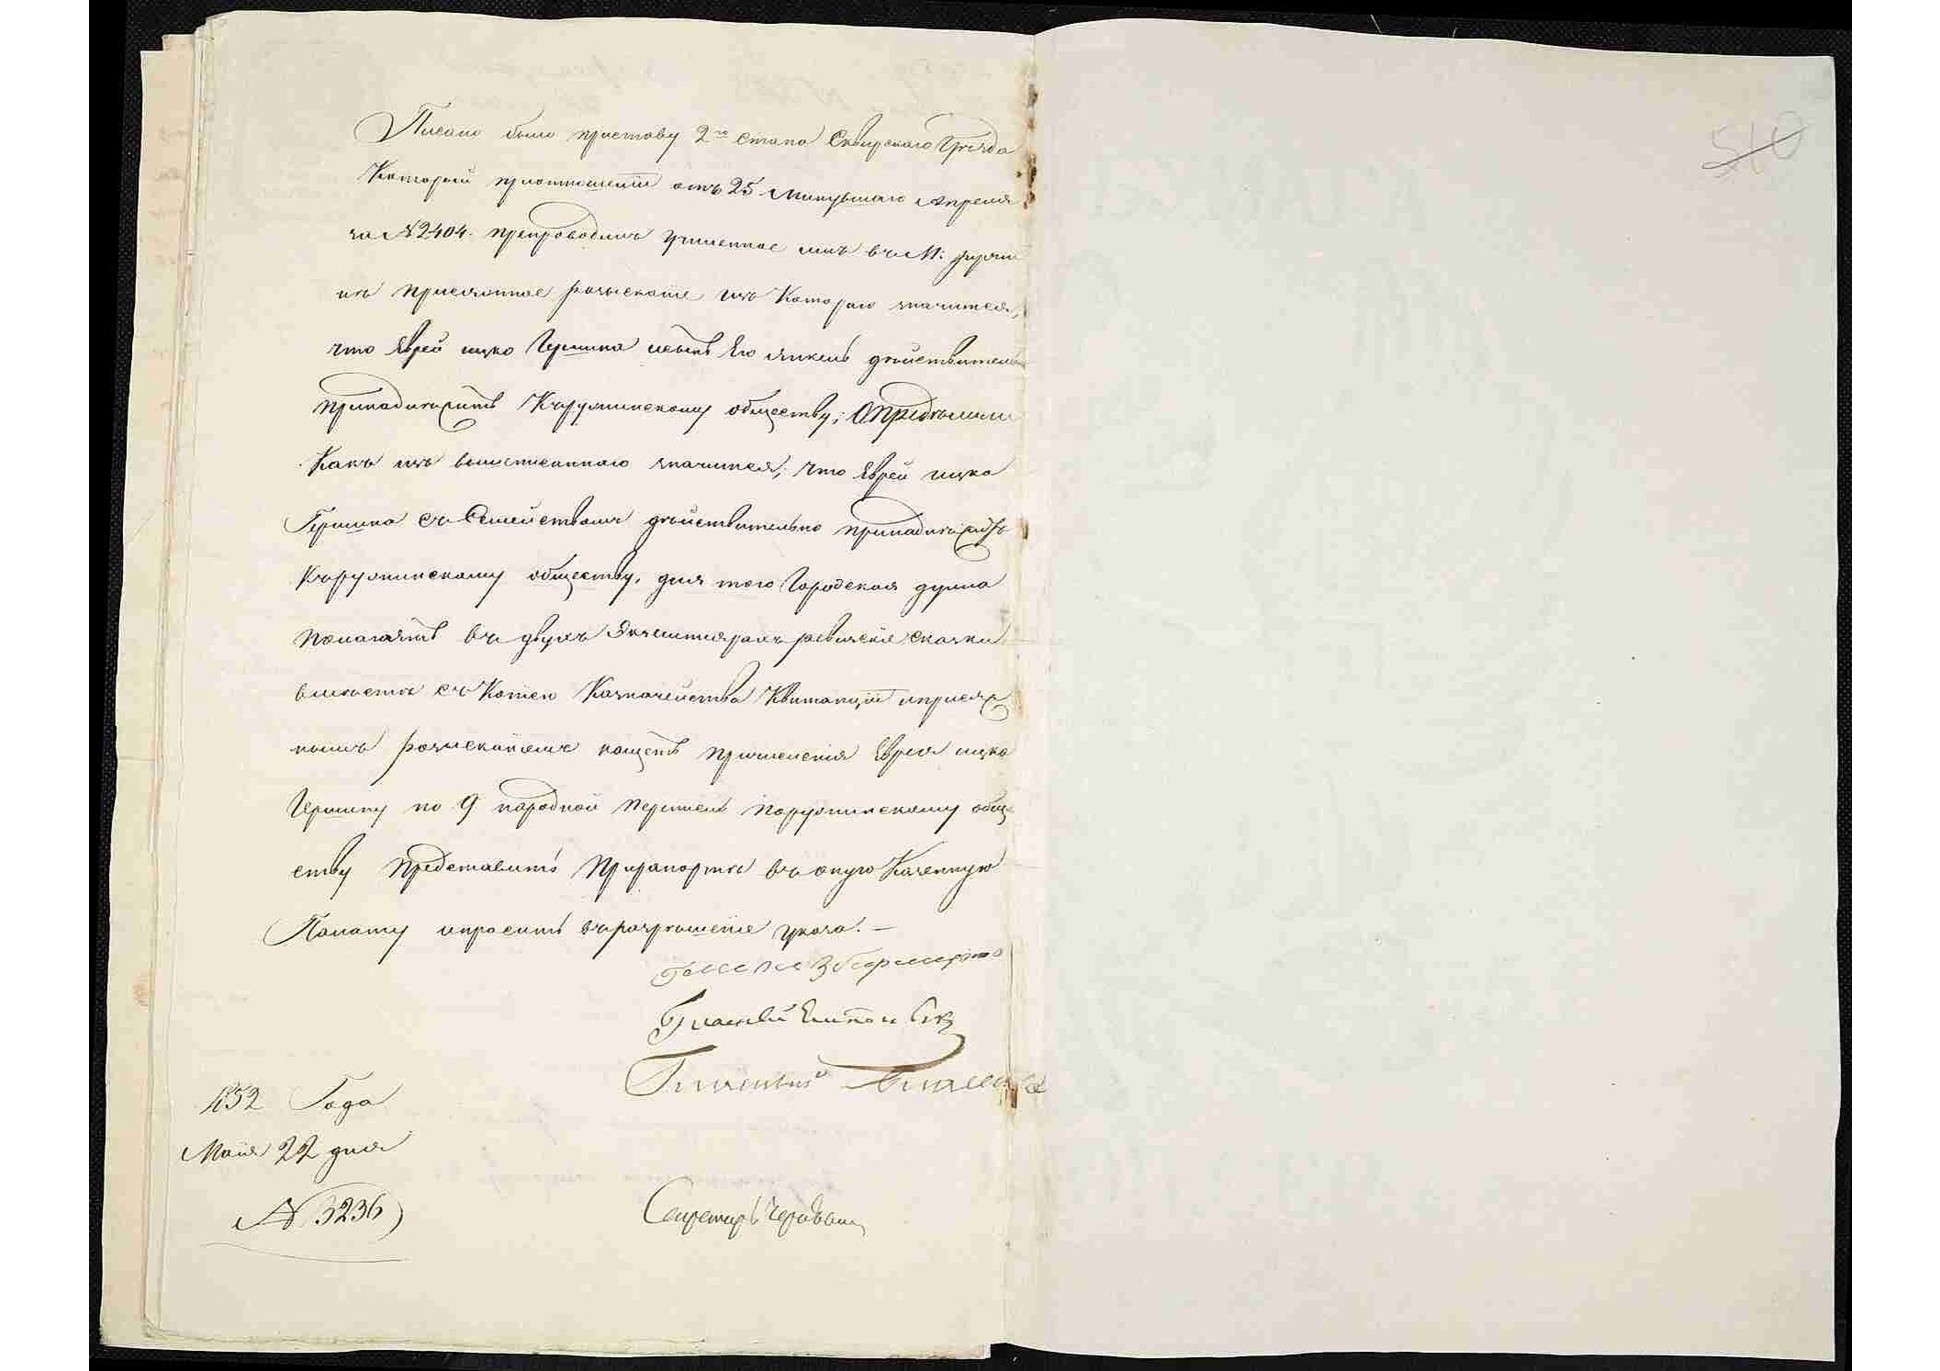 Писано было приставу 2го стана Сквирскаго Уѣзда
Который приотношеніи отъ 25 Минувшаго Апреля
за №2404. препроводилъ учиненное имъ въ М:
присяжное розысканіе изъ Котораго значится,
что Еврей ицко Гершко дѣйствительно
принадлежитъ Къружинскому обществу; Опредѣлили
Какъ изъ вышеписаннаго значится, что Еврей ицко
Гершко съ Семействомъ дѣйствительно принадлежитъ
Къружинскому обществу, для того Городская дума
Полагаетъ въ двухъ Экземплярахъ ревизскія сказки
вмѣстѣ съ Копіею Казначейства Квитанціи иприсяж
нымъ розысканіемъ нащетъ причисленія Еврея ицка
Гершку по 9 народной переписи Поружинскому обще
ству представить Прирапортѣ въ оную Казенную
Палату ипросить въразрѣшеніе указа. —
1852 Года
Маія 22 дня
№ 3236
Секретарь
510